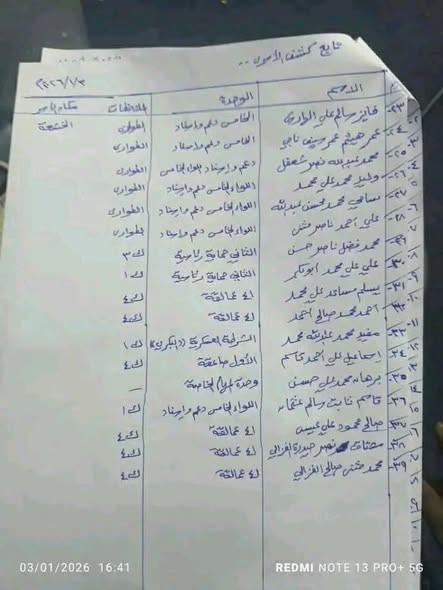 تابع كشف الأسرى ..
٢٠٢٦/١/٣
الاسم الوحدة مكان الأسر
٢٣- فائز سالم علي الخامس دعم وإسناد الطوارئ الخشعة
٢٤- عمر هيثم عمر حسين ناجي الخامس دعم وإسناد الطوارئ
٢٥- محمد عبدالله نصر دعم وإسناد اللواء الخامس الطوارئ
٢٦- وليد محمد علي محمد اللواء الخامس دعم وإسناد الطوارئ
٢٧- سامي محمد محسن عبدالله اللواء الخامس دعم وإسناد الطوارئ
٢٨- علي أحمد ناصر مثنى اللواء الخامس دعم وإسناد الطوارئ
٢٩- محمد فضل ناصر حسن الثاني حماية رئاسية ك٣
٣٠- علي علي محمد أبوبكر الثاني حماية رئاسية ك١
٣١- يسلم مساعد علي محمد ٤ عمالقة ك٤
٣٢- أحمد محمد صالح أحمد ٤ عمالقة ك٤
٣٣- مفيد محمد عبدالله محمد الشرطة العسكرية ك١
٣٤- اسماعيل علي أحمد قاسم الأول صاعقة ك٤
٣٥- برهان محمد علي حسن وحدة المهام الخاصة —
٣٦- قاسم ثابت سالم عثمان اللواء الخامس دعم وإسناد ك١
٣٧- صالح محمود علي عيسى ٤ عمالقة ك٤
٣٨- مشتاق نصر حيدرة الغزالي ٤ عمالقة ك٤
٣٩- محمد مثنى صالح الغزالي ٤ عمالقة ك٤
03/01/2026 16:41
REDMI NOTE 13 PRO+ 5G